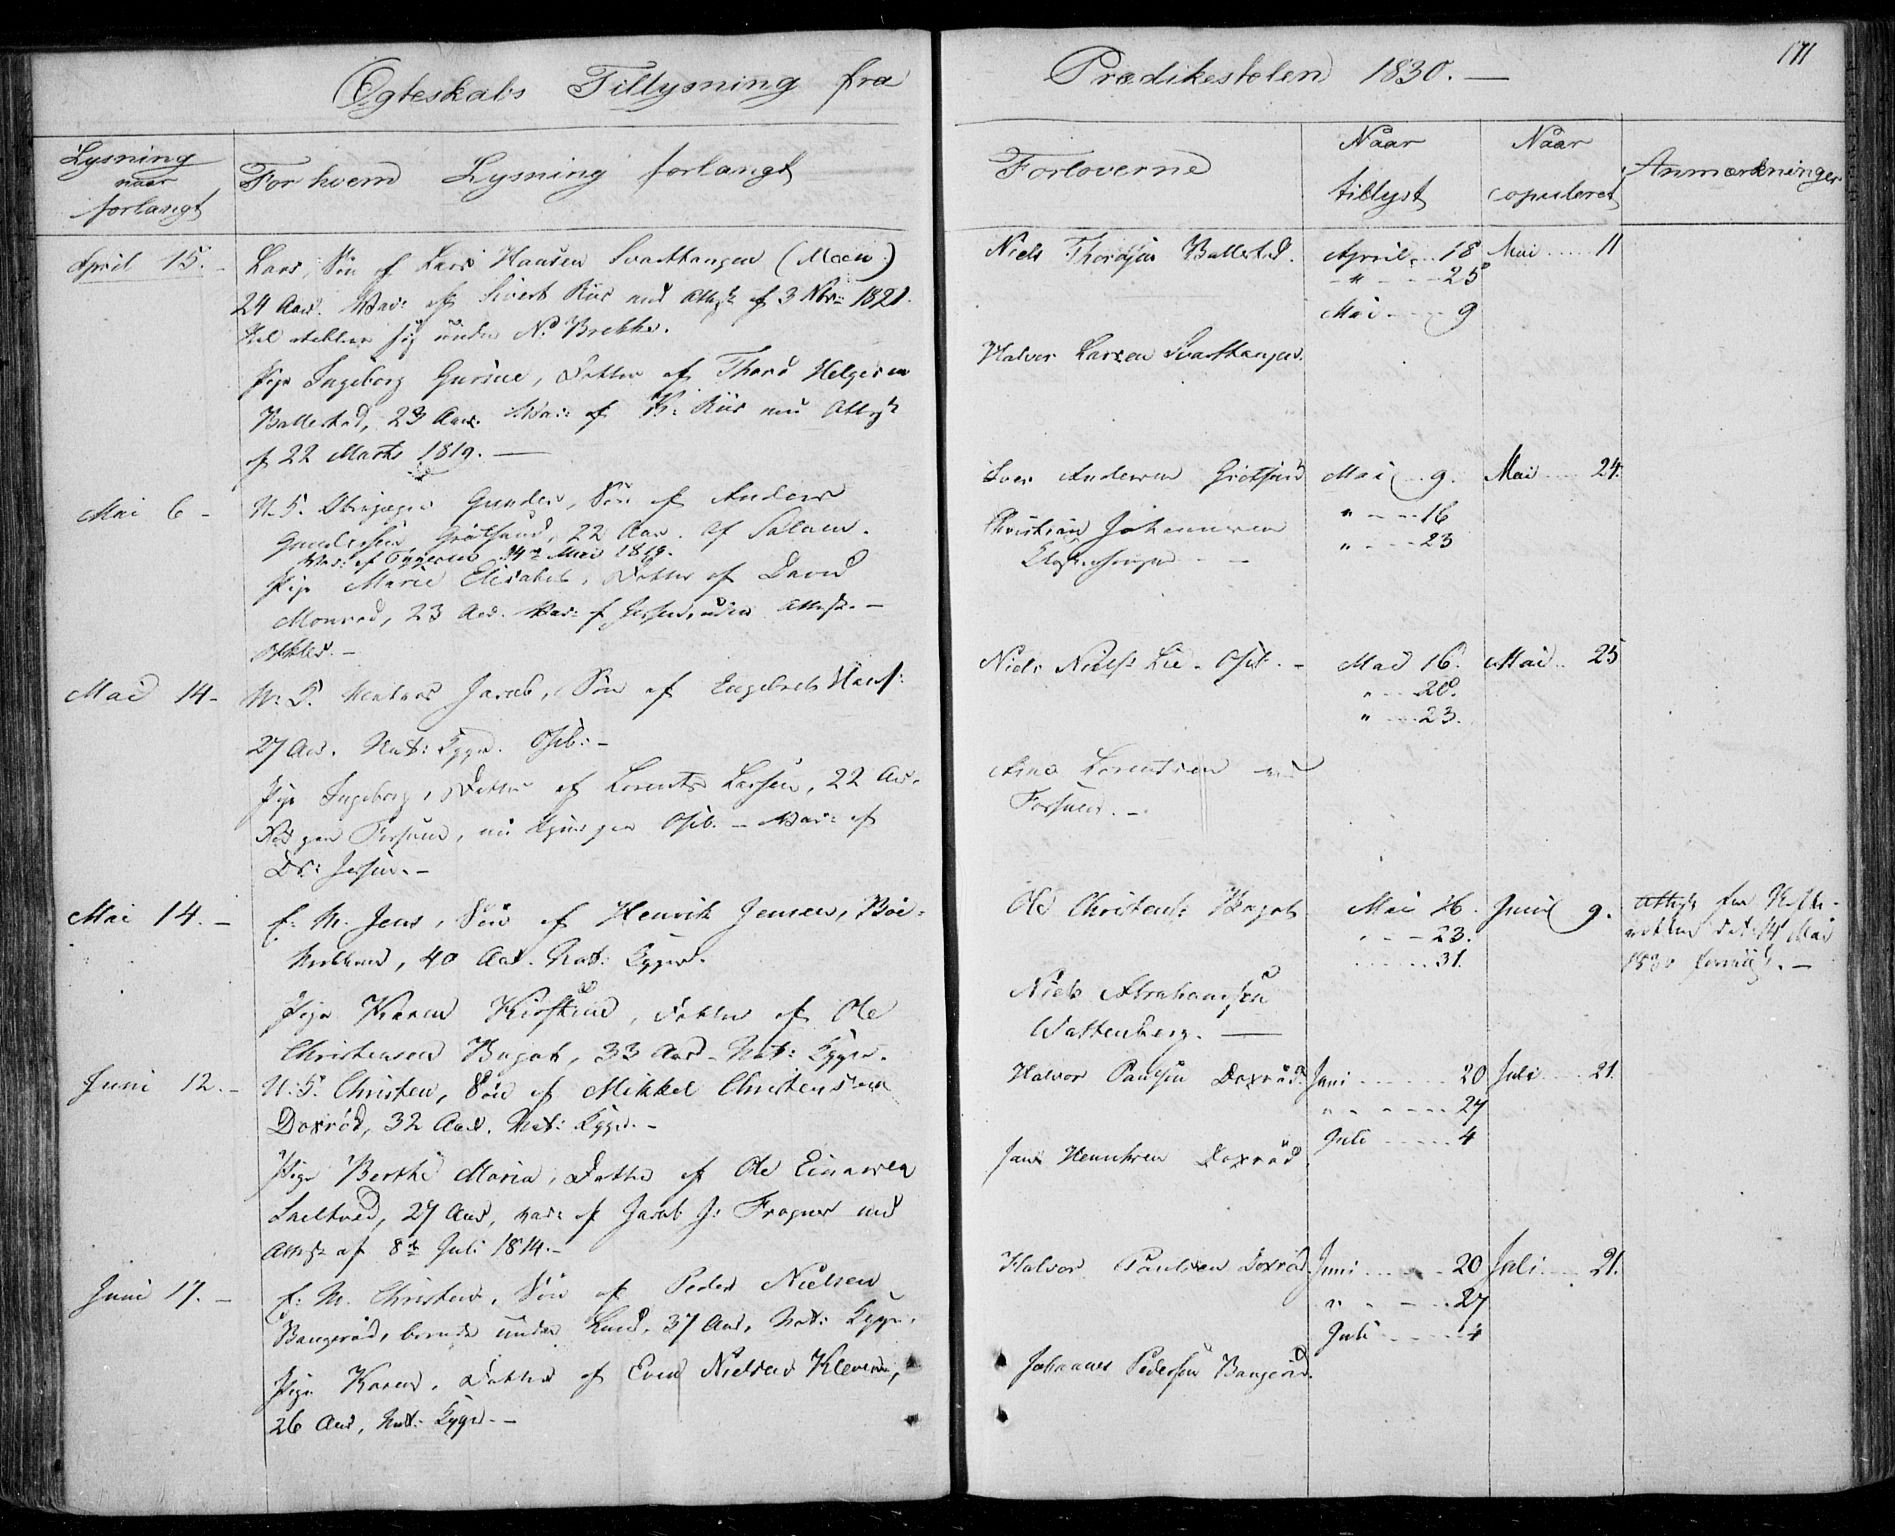 Ægteskabs Tillysning fra Prædikestolen 1830. —
171
Lysning naar forlangt
For hvem Lysning forlangt
Forloverne
Naar tillyst
Naar copuleret
Anmærkninger
April 15. -
Lars, Søn af Lars Hansen Svarttangen (Moen)
24 Aar. Vac: af Sivert Riis med Attest af 3 Nbr: 1821.
sig under No Brekke.
Pige Ingeborg Gurine, Datter af Thord Helgesen
Ballestad, 23 Aar. Vac: af Riis med Attest
af 22 Marts 1819. —
Niels Thordsen Ballestad.
Halvor Larsen Svarttangen.
April . . 18
" - - - 25
Mai - - - 9
Mai . . . . 11
Mai 6 -
U. S. Gunder, Søn af Anders
Gundersen Grotsund, 22 Aar. af
Vac: af 14de Mai 1819.
Pige Marie Elisabet, Datter af David
Monrad, 23 Aar. Vac: af Attest. —
Iver Andersen Grotsund
Christian Johannesen
Mai . . 9.
" - - - 16
" - - - 23
Mai . . . 24.
Mai 14 -
U: S. Jacob, Søn af Engebret Hans:
27 Aar. Nat: Kopper. —
Pige Ingeborg, Datter af Lorents Larsen, 22 Aar.
Fossum, nu — Vac: af
Dr: —
Niels Niels: Lie. —
Arne Lorentsen
Fossum. —
Mai 16.
" - - 20.
" - - 23.
Mai . . 25
Mai 14. -
E: M. Jens, Søn af Henrik Jensen,
40 Aar. Nat: Kopper.
Pige Karen Kirstine, Datter af Ole
Christensen 33 Aar. Nat: Kopper.
Ole Christens:
Niels Abrahamsen
Wattenberg. —
Mai 16.
" - - 23.
. . . . 31.
Junii 9.
Attest fra
14 Mai
1830 —
Juni 12. -
U. S. Christen, Søn af Mikkel Christensen
Doxrød, 32 Aar. Nat: Kopper. -
Pige Berthe Maria, Datter af Ole Einarsen
27 Aar, vac: af Jacob J: Frogner med
Attest af 8de Juli 1814. -
Halvor Paulsen Doxrød.
Jens Henriksen Doxrød.
Juni - - - - 20
" - - - - 27
Juli - - - - 4
Juli . . . 21.
Juni 17. -
E: M. Christen, Søn af Peder Nielsen
Bangerød, boende under Lund, 37 Aar, Nat: Kopper.
Pige Karen, Datter af Even Nielsen Kleven,
26 Aar, Nat: Kopper. —
Halvor Paulsen Doxrød.
Johannes Pedersen Bangerød.
Juni - - - - 20
" - - - - 27
Juli - - - - 4
Juli . . . 21.